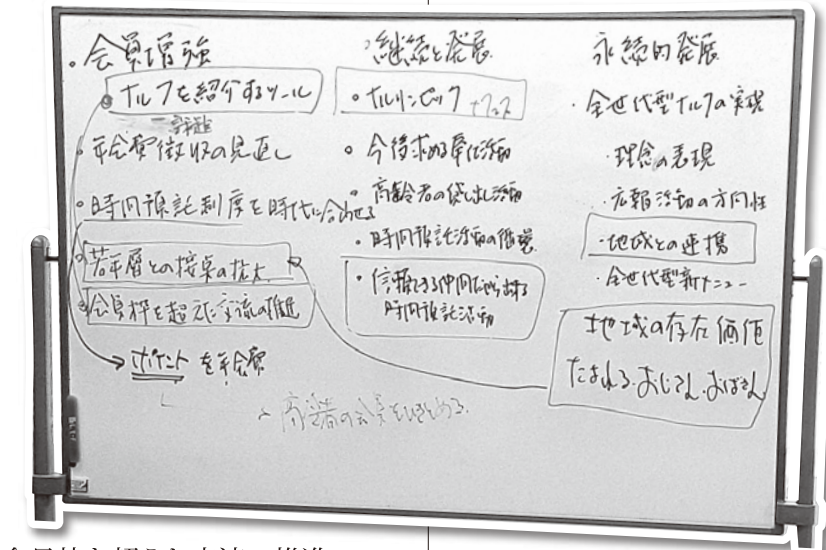 ・会員増強
ナルフを紹介するツール
・年会費徴収の見直し
・時間預託制度を時代に合わせる
若年層との接点の拡大
会員枠を超えた交流の推進
→ポイントを年会費
・継続と発展
・ナルリンピック
・今後求める奉仕活動
・高齢者の貸し出し活動
・時間預託活動の循環
・信頼できる仲間だから出来る
時間預託活動
永続的発展
・全世代型ナルフの実現
・理念の表現
・広報活動の方向性
・地域との連携
・全世代型新メニュー
地域の存在価値
たよれる・おじさん・おばさん
会員枠を超えた交流の推進